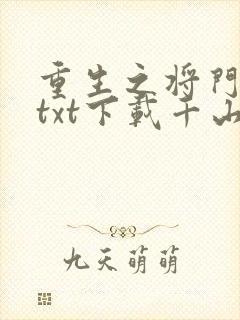 重生之将門
txt下載千山
九天萌萌